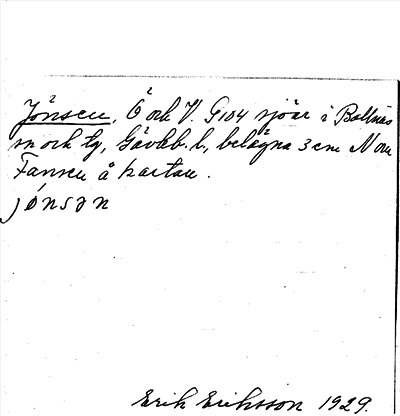 Jönsen, Ö och V. G104 sjöar i Bollnäs
sn och tg, Gävleb. l, belägna 3 cm N om
Fansen å kartan.
jönsən
Erik Eriksson 1929.